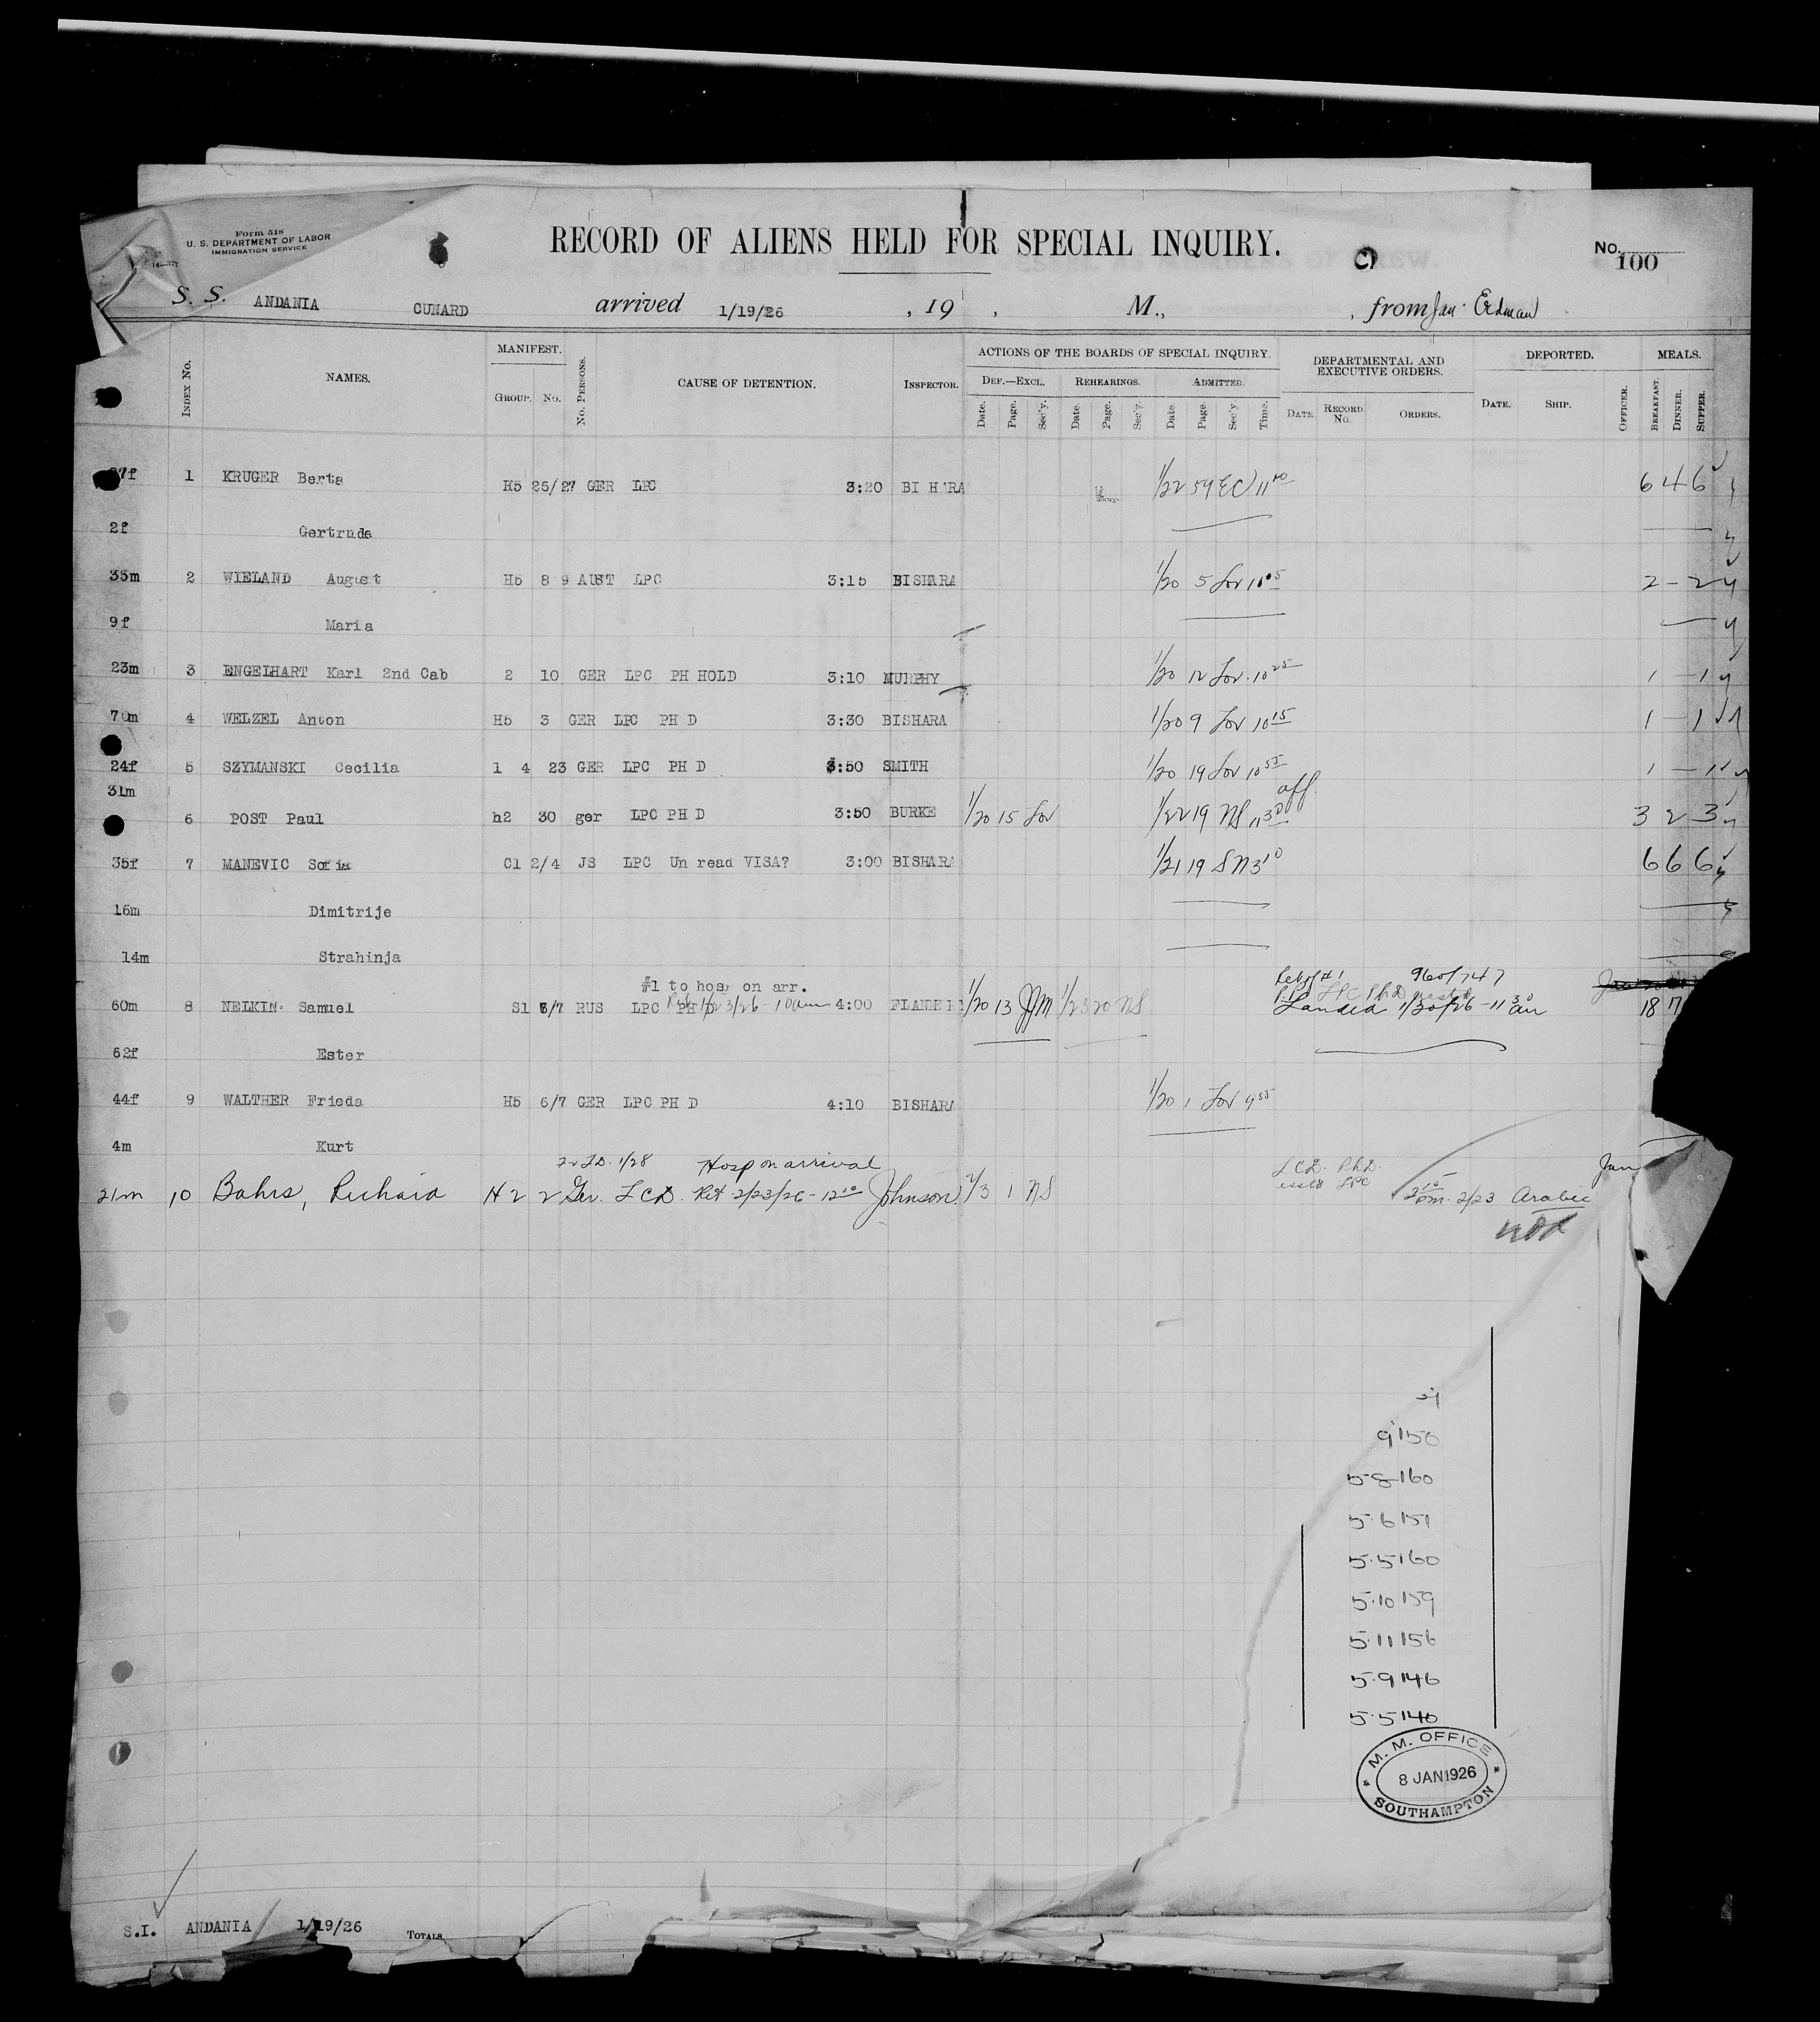 Form 518
U. S. DEPARTMENT OF LABOR
IMMIGRATION SERVICE
RECORD OF ALIENS HELD FOR SPECIAL INQUIRY.
No. 100
S. S. ANDANIA CUNARD arrived 1/19/26 , 19 , M., , from Jan. Erdman
INDEX No. NAMES. MANIFEST. GROUP. No. No. PERSONS. CAUSE OF DETENTION. INSPECTOR. ACTIONS OF THE BOARDS OF SPECIAL INQUIRY. DEF.—EXCL. Date. Page. Sec'y. REHEARINGS. Date. Page. Sec'y. ADMITTED. Date Page. Sec'y. Time. DEPARTMENTAL AND EXECUTIVE ORDERS. DATE. RECORD No. ORDERS. DEPORTED. DATE. SHIP. OFFICER. MEALS. BREAKFAST. DINNER. SUPPER.
27f 1 KRUGER Berta H5 26/27 GER LPC 3:20 BISHARA 1/22 59 EC 11 6 4 6
2f Gertrude
35m 2 WIELAND August H5 8 9 AUST LPC 3:15 BISHARA 1/20 5 Lov 10 05 2 – 2
9f Maria
23m 3 ENGELHART Karl 2nd Cab 2 10 GER LPC PH HOLD 3:10 MURPHY 1/20 12 Lov. 10 25 1 – 1
70m 4 WELZEL Anton H5 3 GER LPC PH D 3:30 BISHARA 1/20 9 Lov 10 15 1 – 1
24f 5 SZYMANSKI Cecilia 1 4 23 GER LPC PH D 3:50 SMITH 1/20 19 Lov 10 55 1 – 1
31m 6 POST Paul h2 30 ger LPC PH D 3:50 BURKE 1/20 15 Lov 1/22 19 NS 11 30 aff. 3 2 3
35f 7 MANEVIC Sofia C1 2/4 JS LPC Un read VISA? 3:00 BISHARA 1/21 19 SN 3 10 6 6 6
16m Dimitrije
14m Strahinja
#1 to hosp on arr. 960/747
60m 8 NELKIN Samuel S1 6/7 RUS LPC PH D 1/23/26 - 10am 4:00 FLANDER 1/20 13 JJM 1/23 20 NS LPC PhD Landed 1/30/26 - 11 30 am 18 17
62f Ester
44f 9 WALTHER Frieda H5 6/7 GER LPC PH D 4:10 BISHARA 1/20 1 Lov 9 55
4m Kurt
1/28 Hosp on arrival LCD. PhD. LPC Jan
21m 10 Bahrs, Richard H 2 2 Ger. LCD. Ret 2/23/26 - 12 10 Johnson 2/3 1 NS 2 15 pm. 2/23 Arabic
9 150
5-8 160
5.6 151
5.5 160
5.10 159
5.11 156
5.9 146
5.5 140
M. M. OFFICE
8 JAN 1926
SOUTHAMPTON
S.I. ANDANIA 1/19/26 TOTALS.